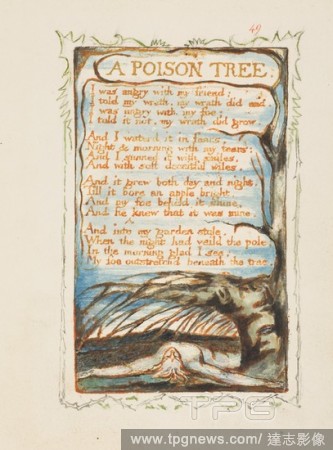 49
A POISON TREE.
I was angry with my friend;
I told my wrath, my wrath did end.
I was angry with my foe:
I told it not, my wrath did grow.
And I waterd it in fears,
Night & morning with my tears:
And I sunned it with smiles,
And with soft deceitful wiles.
And it grew both day and night,
Till it bore an apple bright.
And my foe beheld it shine,
And he knew that it was mine.
And into my garden stole,
When the night had veild the pole;
In the morning glad I see,
My foe outstretchd beneath the tree.
TPG
www.tpgnews.com/ 達志影像